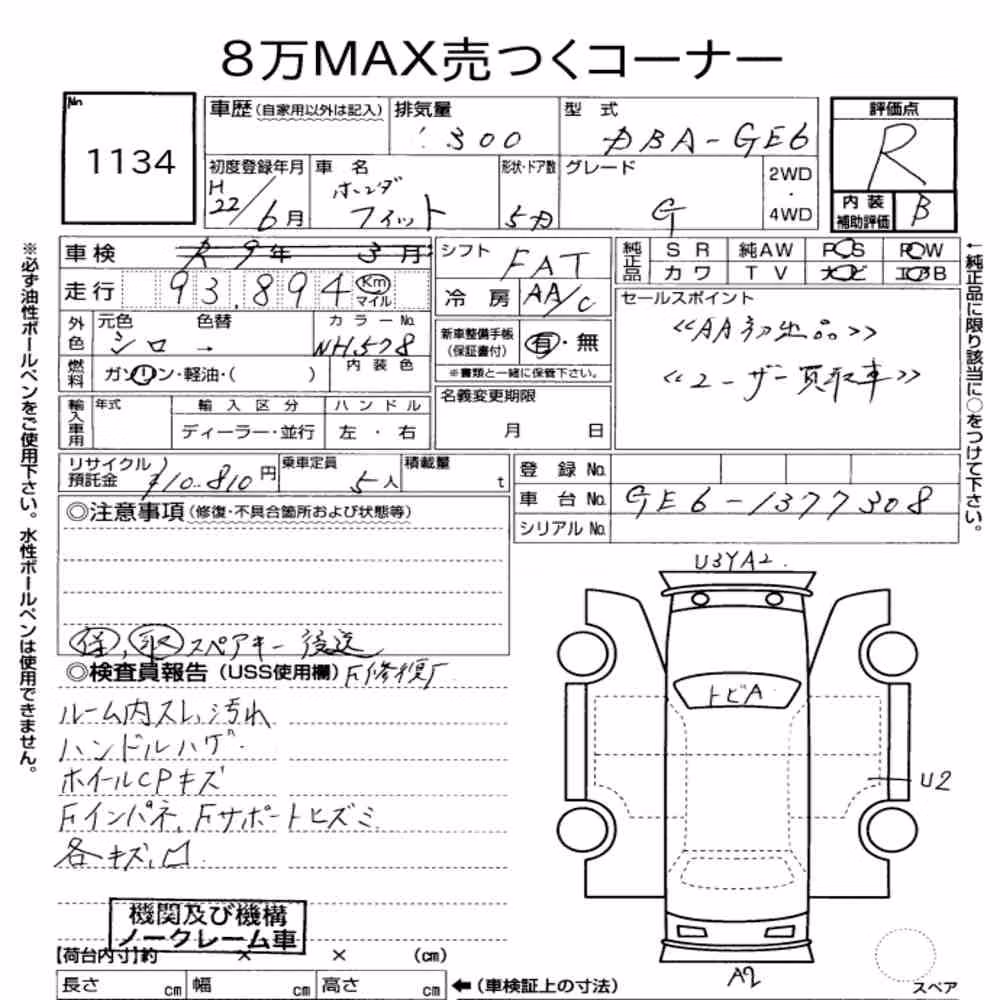 8万MAX売つくコーナー
No.
1134
車歴(自家用以外は記入)
排気量
1300
型式
DBA-GE6
評価点
R
初度登録年月
H22/6月
車名
ホンダ
フィット
形状・ドア数
5D
グレード
G
2WD
・
4WD
内装
補助評価
B
車検
R9年3月
走行
93,894
Km
マイル
シフト
FAT
冷房
AA/C
純正品
SR
純AW
P○S
P○W
カワ
TV
ナビ
エアB
セールスポイント
《AA初出品》
《ユーザー買取車》
外色
元色
シロ
色替
→
カラーNo.
NH578
内装色
燃料
ガソリン・軽油・( )
新車整備手帳
(保証書付)
有・無
※書類と一緒に保管下さい。
名義変更期限
月 日
輸入車用
年式
輸入区分
ディーラー・並行
ハンドル
左・右
リサイクル
預託金
¥10,810円
乗車定員
5人
積載量
t
登録No.
車台No.
GE6-1377308
シリアルNo.
◎注意事項(修復・不具合箇所および状態等)
保,取 スペアキー後送
◎検査員報告(USS使用欄)F修復ア
ルーム内スレ,汚れ
ハンドルハゲ.
ホイールCPキズ
Fインパネ,Fサポートヒズミ
各キズ,凹
機関及び機構
ノークレーム車
【荷台内寸】約 × × (cm)
長さ cm
幅 cm
高さ cm
←(車検証上の寸法)
U3YA2.
トビA
U2
A2
スペア
※必ず油性ボールペンをご使用下さい。水性ボールペンは使用できません。
←純正品に限り該当に○をつけて下さい。